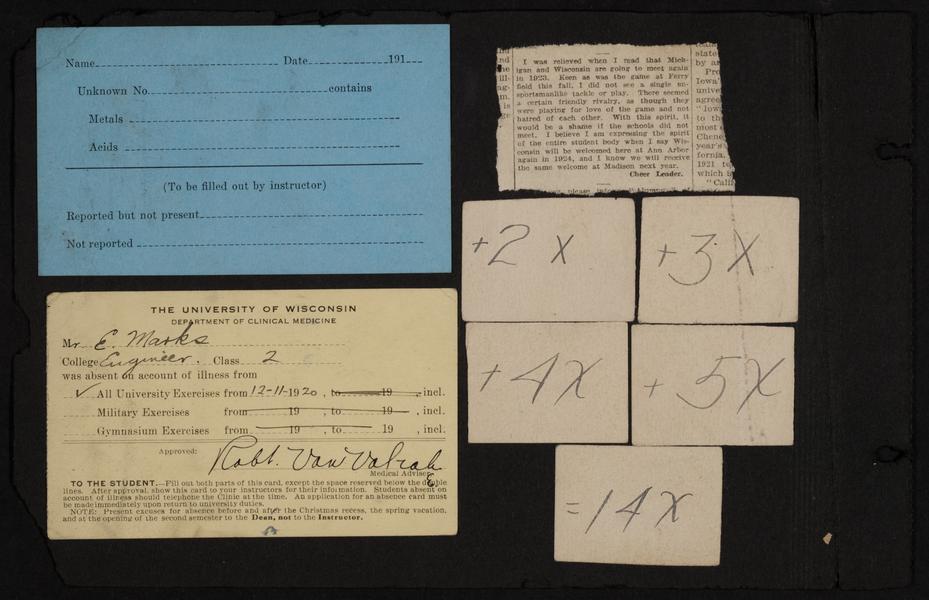 Name Date 191
Unknown No. contains
Metals
Acids
(To be filled out by instructor)
Reported but not present
Not reported
THE UNIVERSITY OF WISCONSIN
DEPARTMENT OF CLINICAL MEDICINE
Mr. E. Marks
College Engineer. Class 2
was absent on account of illness from
✓ All University Exercises from 12-11-1920, to 19 , incl.
Military Exercises from 19 , to 19 , incl.
Gymnasium Exercises from 19 , to 19 , incl.
Approved: Robt. Van Valzah
Medical Adviser
TO THE STUDENT.—Fill out both parts of this card, except the space reserved below the double
lines. After approval, show this card to your instructors for their information. Students absent on
account of illness should telephone the Clinic at the time. An application for an absence card must
be made immediately upon return to university duties.
NOTE: Present excuses for absence before and after the Christmas recess, the spring vacation,
and at the opening of the second semester to the Dean, not to the Instructor.
I was relieved when I read that Mich-
igan and Wisconsin are going to meet again
in 1923. Keen as was the game at Ferry
field this fall, I did not see a single un-
sportsmanlike tackle or play. There seemed
a certain friendly rivalry, as though they
were playing for love of the game and not
hatred of each other. With this spirit, it
would be a shame if the schools did not
meet. I believe I am expressing the spirit
of the entire student body when I say Wis-
consin will be welcomed here at Ann Arbor
again in 1924, and I know we will receive
the same welcome at Madison next year.
Cheer Leader.
state
by an
Pro
Iowa'
univer
agree
"Iow
to the
most
Chene
year's
fornia.
1921 te
which
"Calif
+2 X
+3X
+4X
+5X
=14X